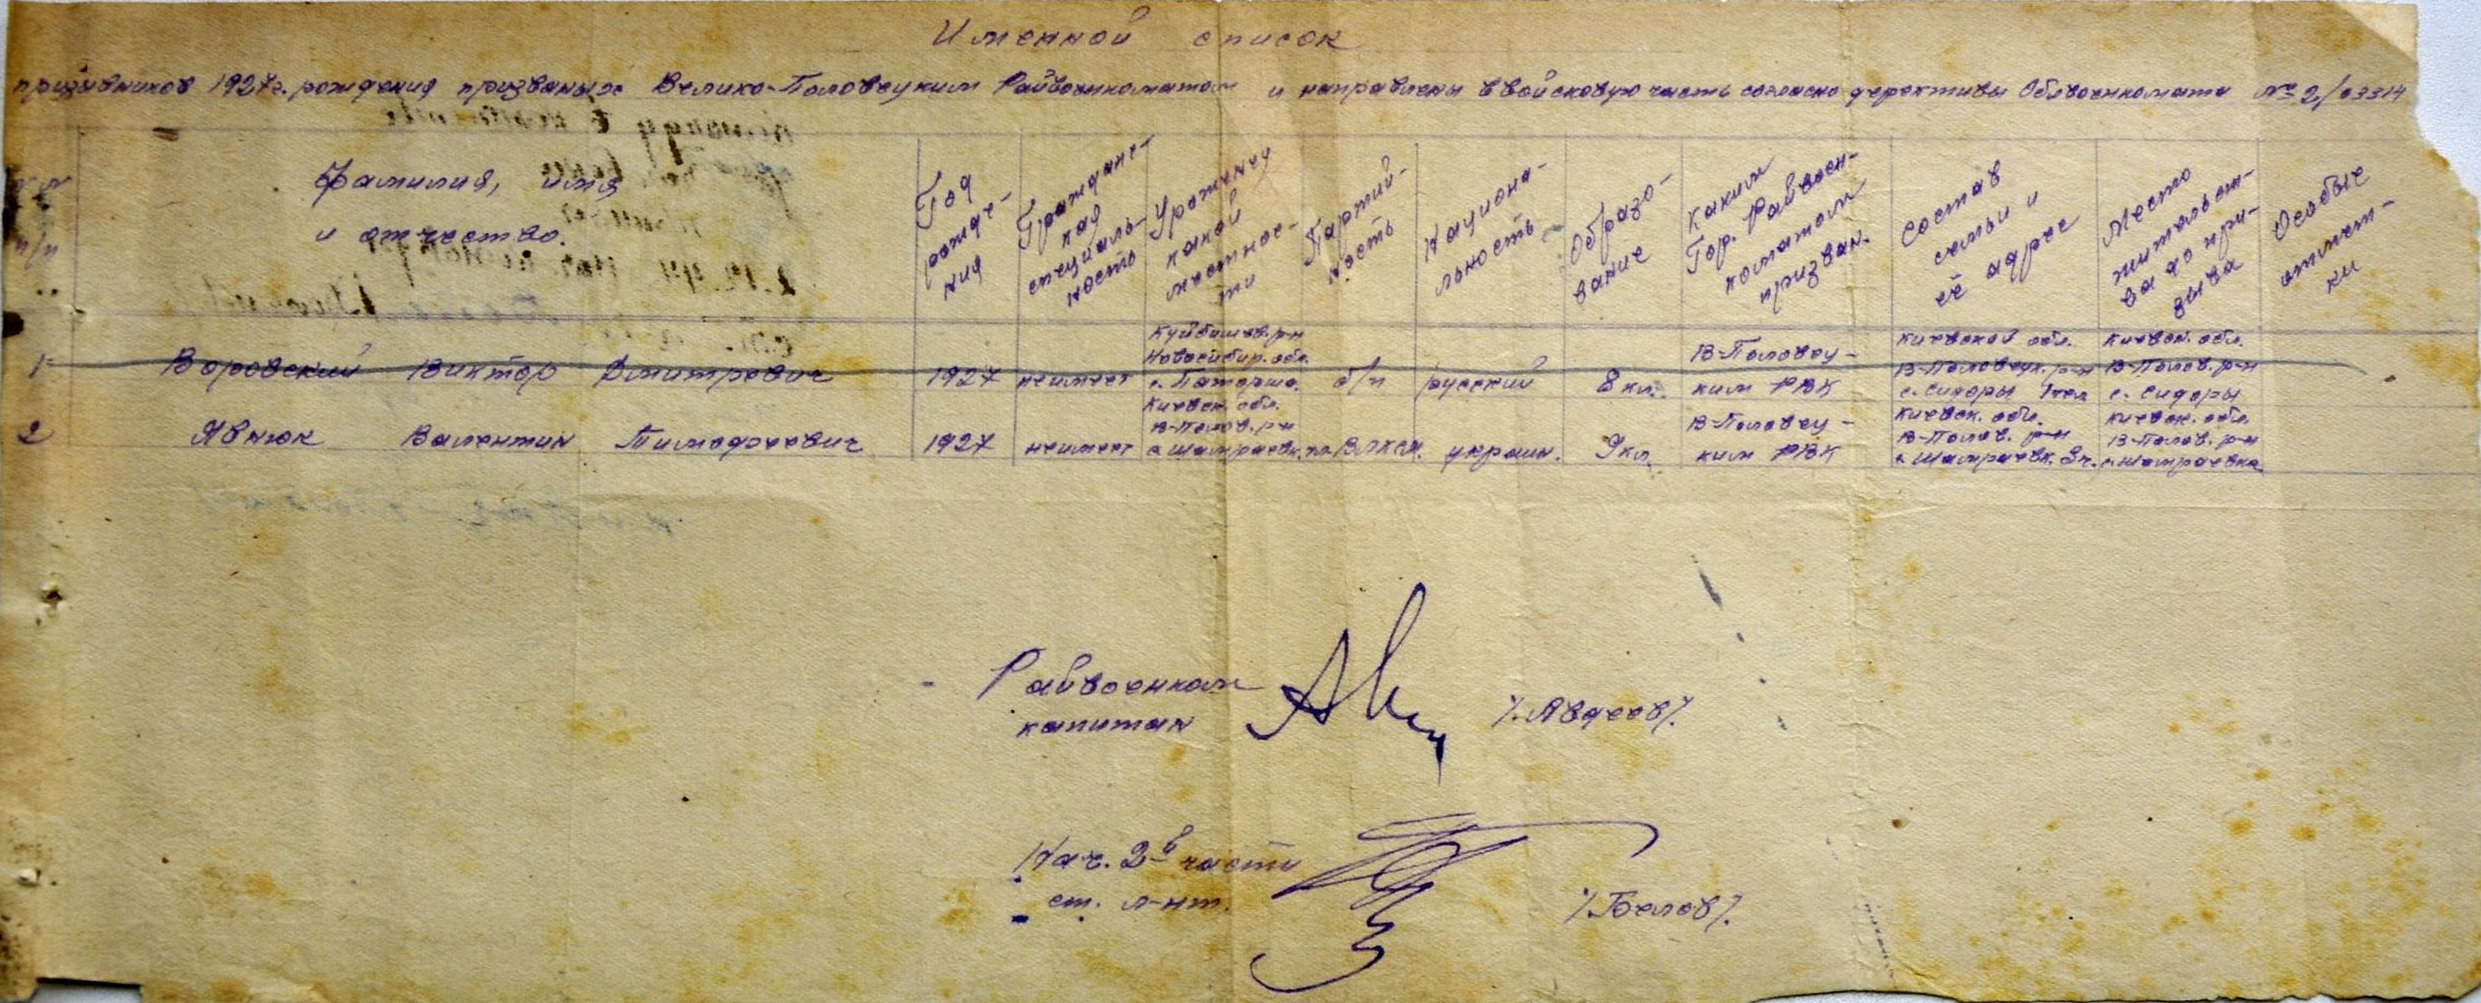 Именной список
призывников 1927г. рождения призваных Велико-Половецким Райвоенкоматом и направлены в войсковую часть согласно дерективы Облвоенкомата № 2/03314
п/п
Фамилия, имя
и отчество.
Год
рожде-
ния
Гражданс-
кая
специаль-
ность
Уроженец
какой
местнос-
ти
Партий-
ность
Национа-
льность
Образо-
вание
Каким
Гор. Райвоен-
коматом
призван.
Состав
семьи и
её адрес
Место
жительст-
ва до при-
зыва
Особые
отмет-
ки
1 Воровский Виктор Дмитревич 1927 неимеет
Куйбишев. р-н
Новосибир. обл.
б/п русский 8 кл.
В-Половец-
ким РВК
Киевской обл.
В-Половецк. р-н
с. Сидоры 1чел
Киевск. обл.
В-Полов. р-н
с. Сидоры
2 Явнюк Валентин Тимофеевич 1927 неимеет
Киевск. обл.
В-Полов. р-н
с. Шамраевк. чл. ВЛКСМ. украин. 9 кл.
В-Половец-
ким РВК
Киевск. обл.
В-Полов. р-н
с. Шамраевк. 3ч.
Киевск. обл.
В-Полов. р-н
с. Шамраевка
Райвоенком
капитан /Авдеев/.
Нач. 2й части
ст. л-нт. /Белов/.